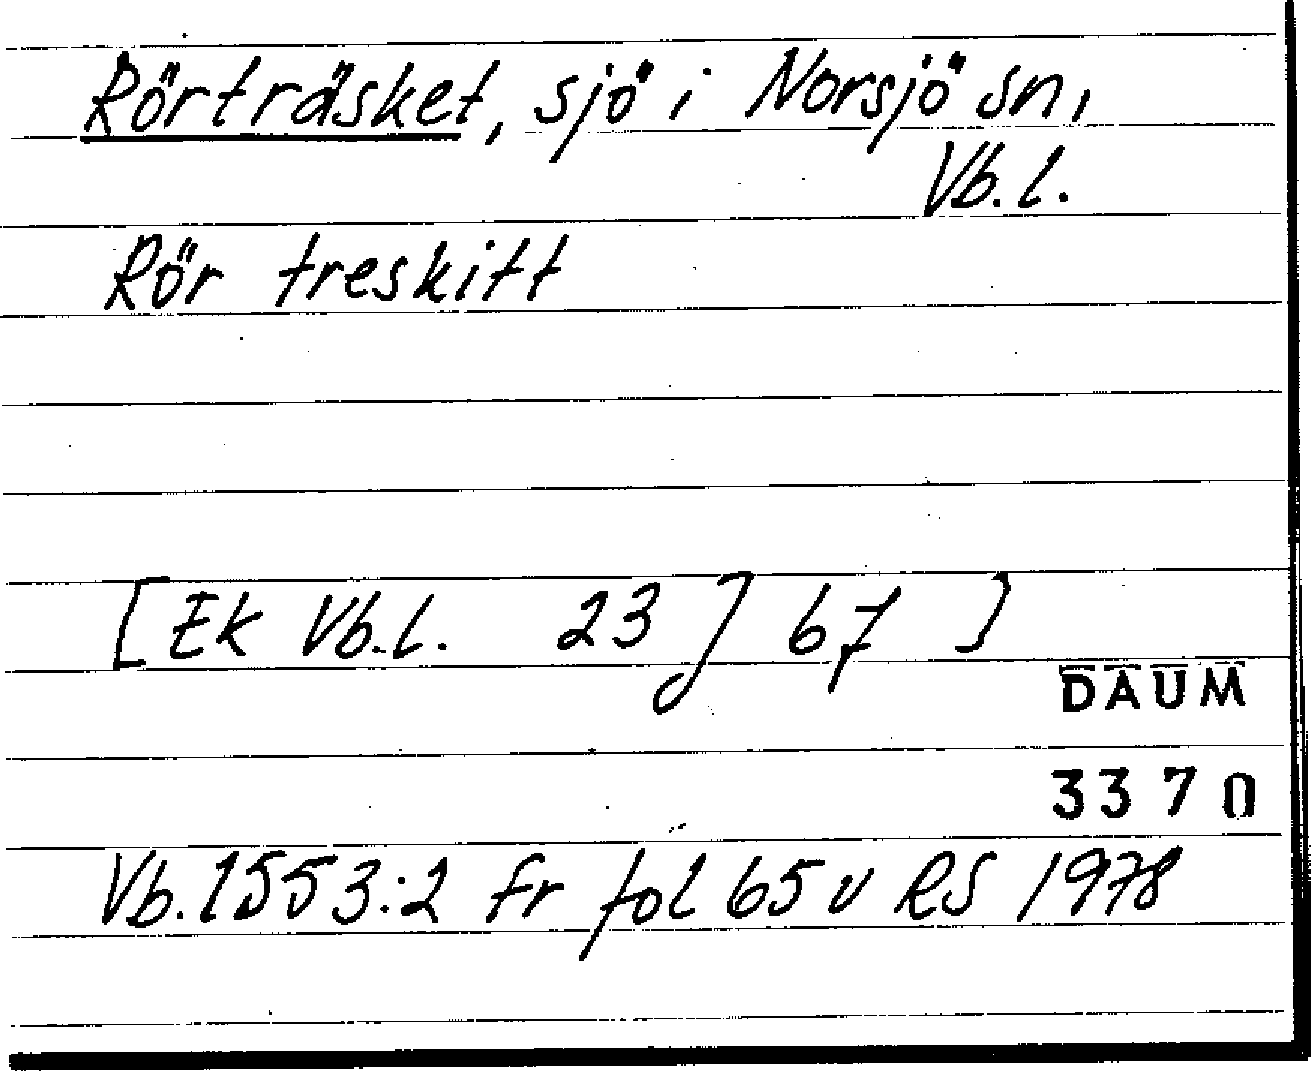 Rörträsket, sjö i Norsjö sn,
Vb. l.
Rör treskitt
[Ek Vb.l. 23 J 67 ]
DAUM
3370
Vb. 1553:2 Fr fol 65 v RS 1978